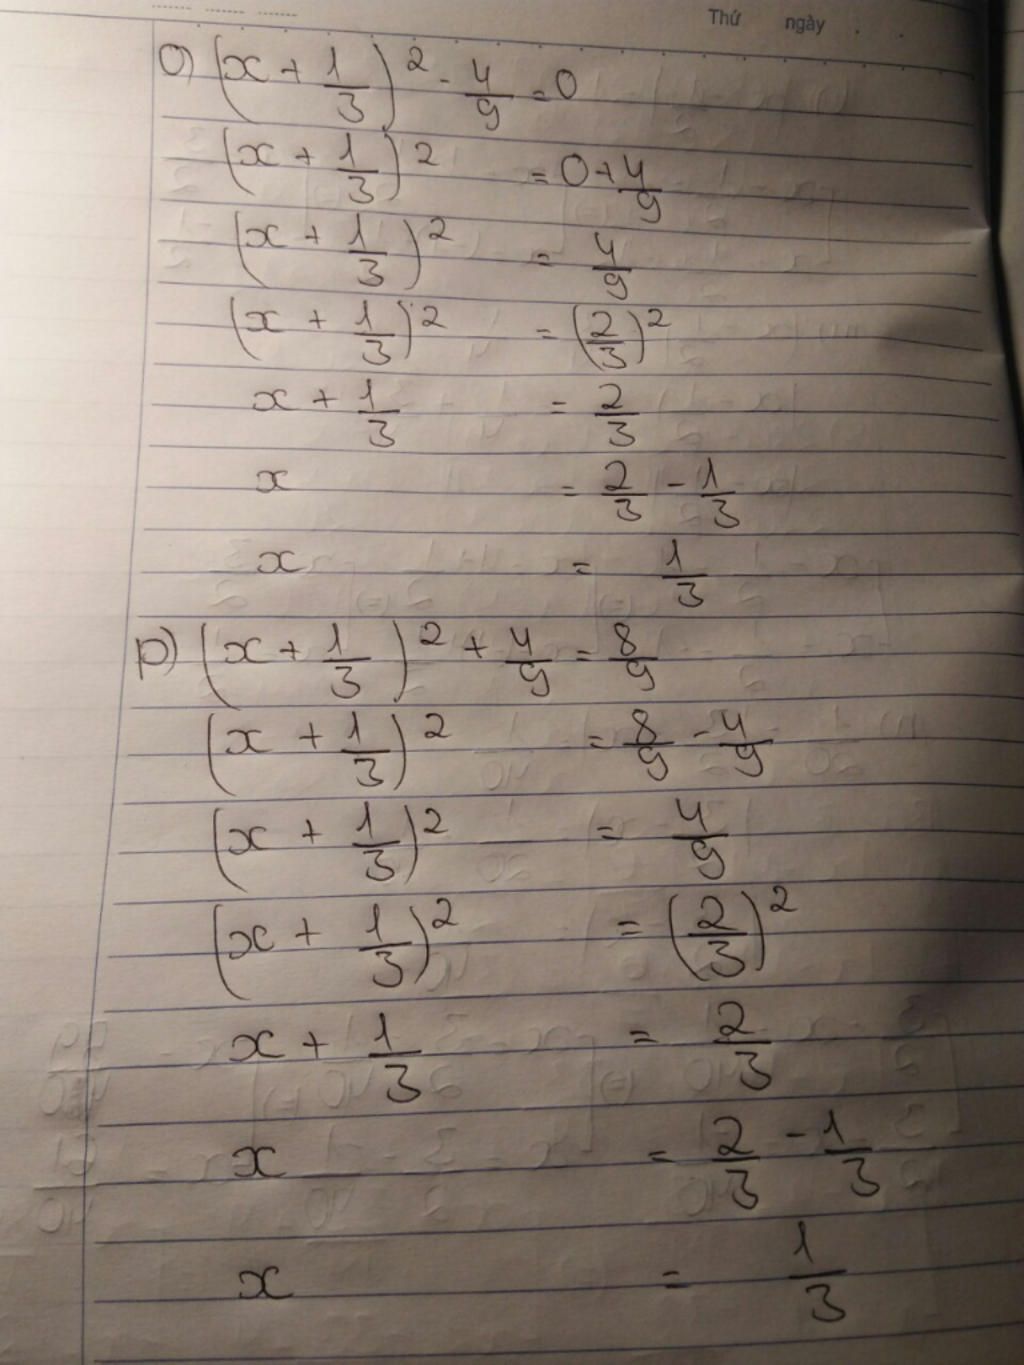 Thứ ngày
o) (x + 1/3)² - 4/9 = 0
(x + 1/3)² = 0 + 4/9
(x + 1/3)² = 4/9
(x + 1/3)² = (2/3)²
x + 1/3 = 2/3
x = 2/3 - 1/3
x = 1/3
p) (x + 1/3)² + 4/9 = 8/9
(x + 1/3)² = 8/9 - 4/9
(x + 1/3)² = 4/9
(x + 1/3)² = (2/3)²
x + 1/3 = 2/3
x = 2/3 - 1/3
x = 1/3